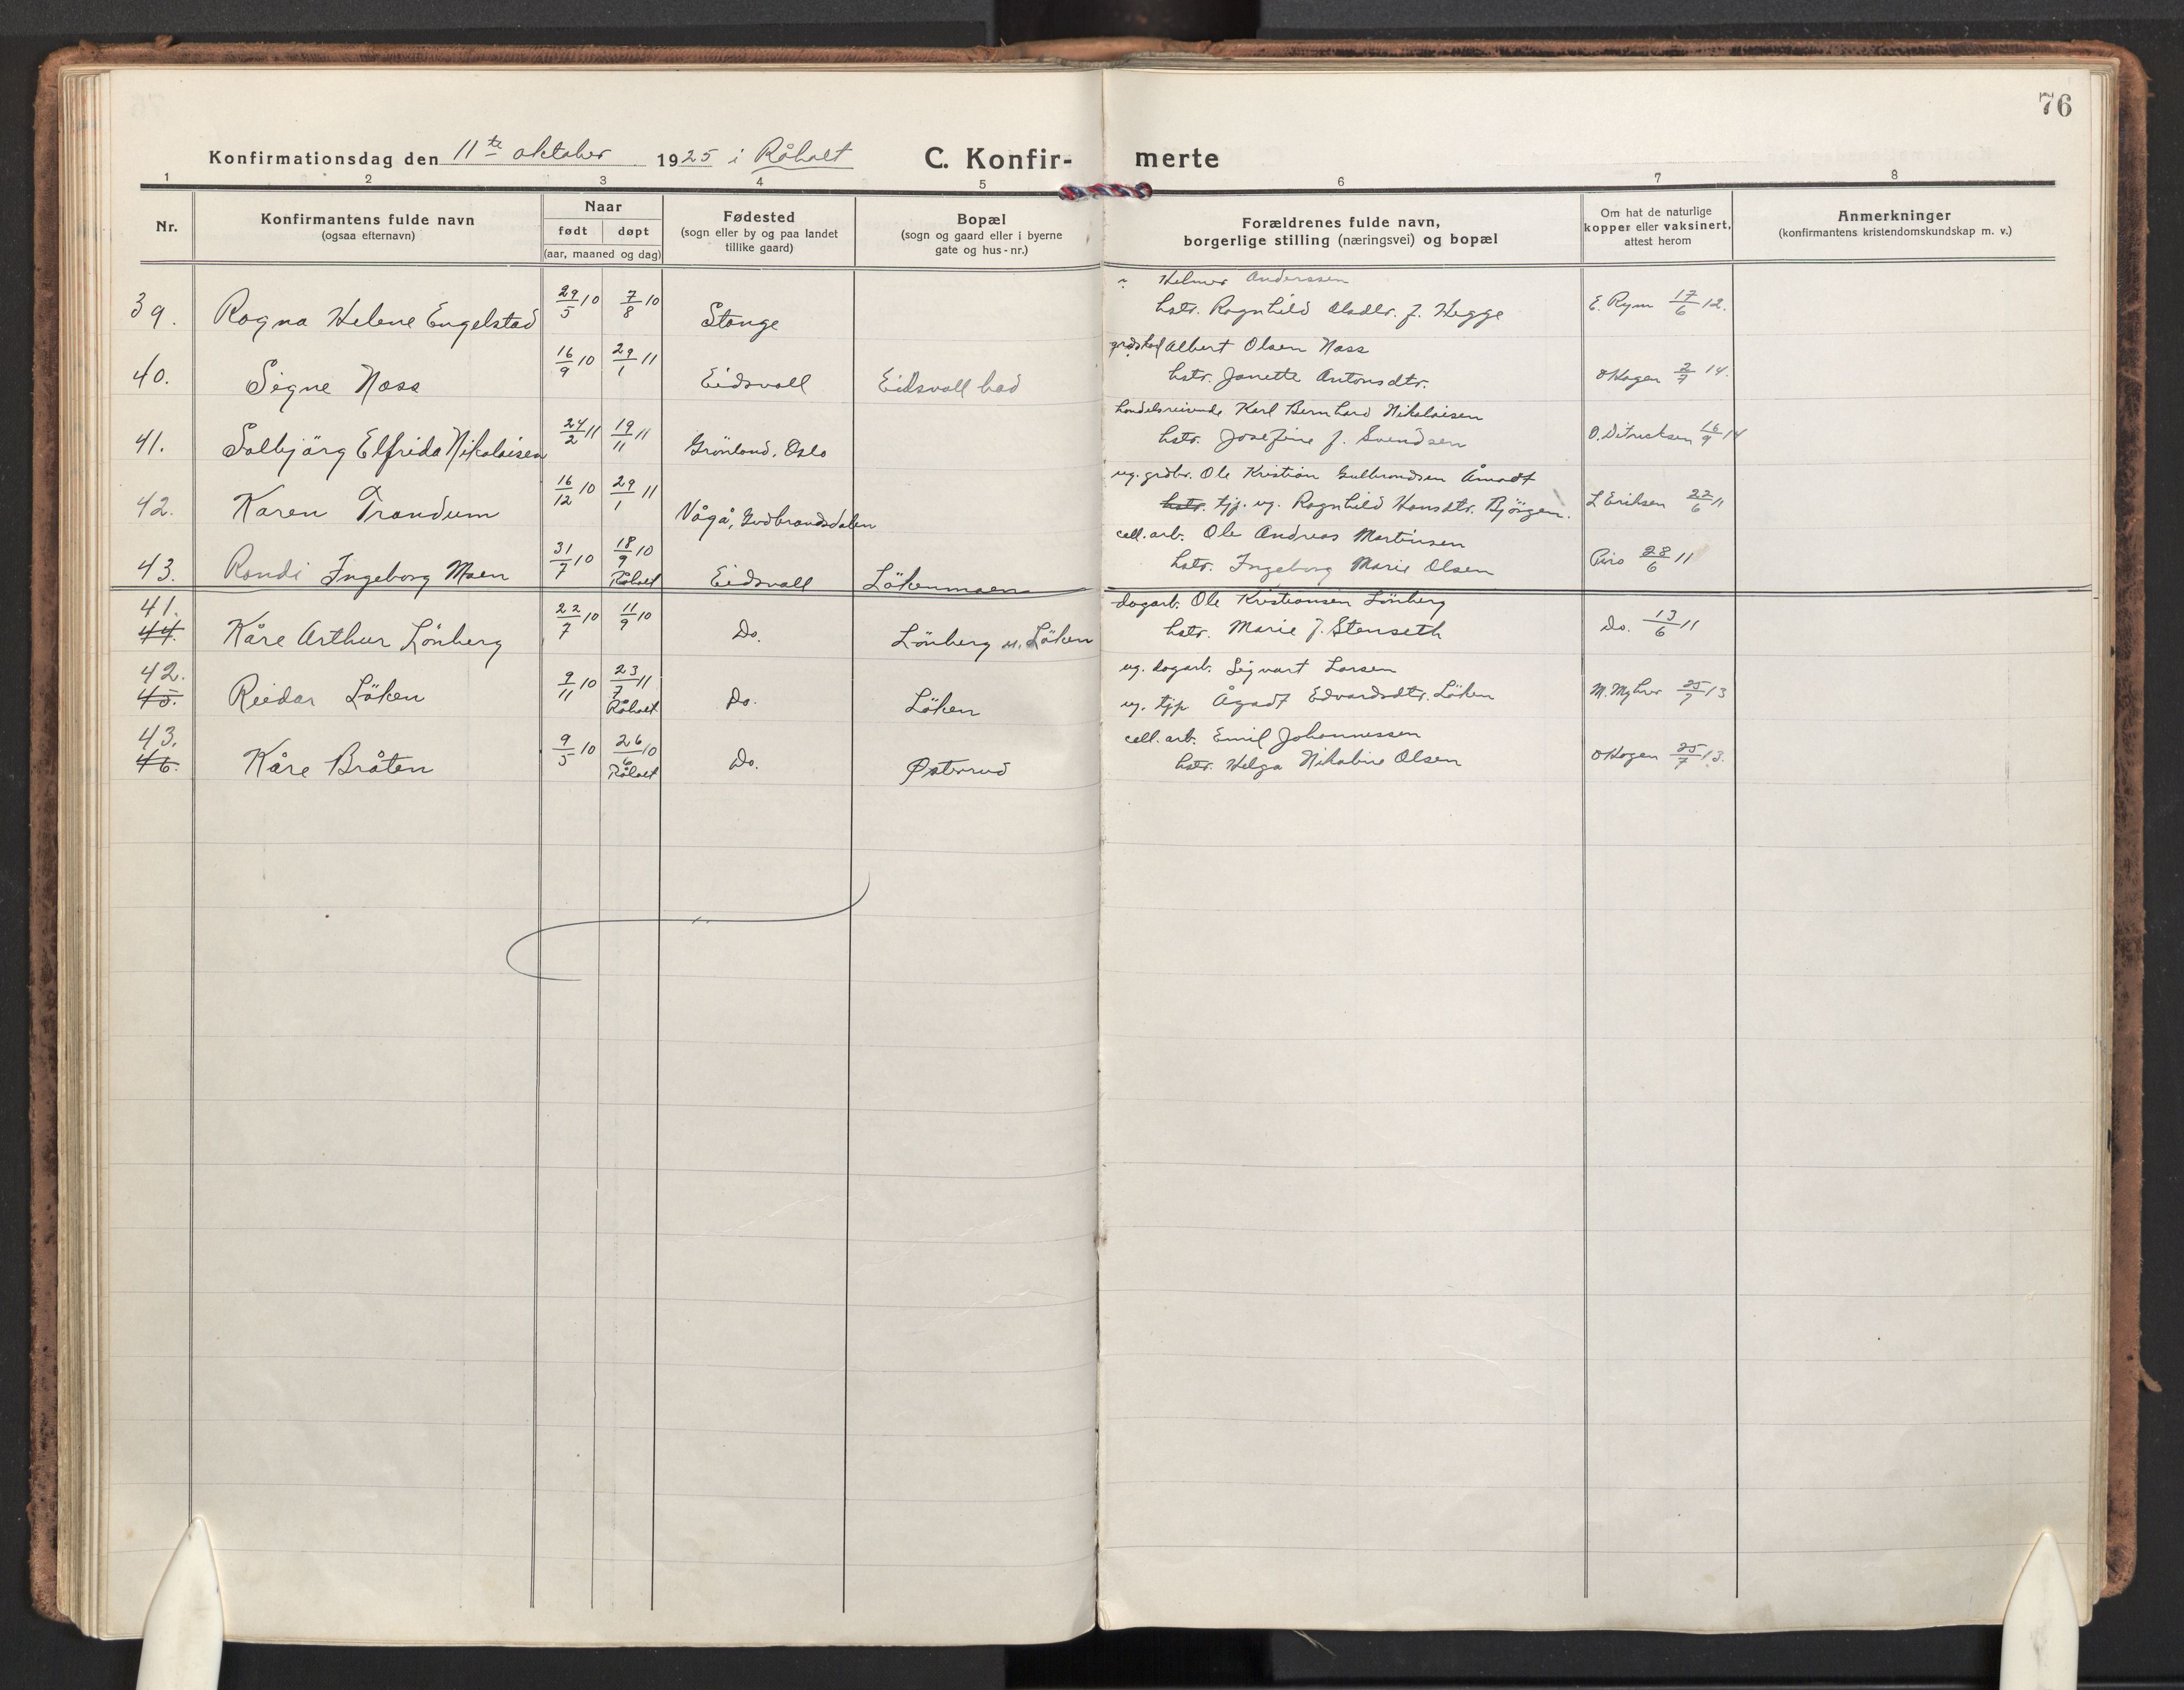 76
Konfirmationsdag den 11te oktober 1925 i Råholt C. Konfir- merte
1 2 3 4 5 6 7 8
Nr. Konfirmantens fulde navn (ogsaa efternavn) Naar født døpt (aar, maaned og dag) Fødested (sogn eller by og paa landet tillike gaard) Bopæl (sogn og gaard eller i byerne gate og hus-nr.) Forældrenes fulde navn, borgerlige stilling (næringsvei) og bopæl Om hat de naturlige kopper eller vaksinert, attest herom Anmerkninger (konfirmantens kristendomskundskap m. v.)
39. Ragna Helene Engelstad 29/5 10 7/8 10 Stange Helmer Anderssen
hstr. Ragnhild f. Hegge E. Rym 17/6 12.
40. Signe Næss 16/9 10 29/1 11 Eidsvoll Eidsvoll bad Albert Olsen Næss
hstr. Janette Antonsdtr. O Hagen 2/7 14.
41. Solbjörg Elfrida Nikolaisen 24/2 11 19/11 11 Grönland, Oslo handelsreisende Karl Bernhard Nikolaisen
hstr. Josefine f. Svendsen O. Ditrichsen 16/9 14
42. Karen Trandum 16/12 10 29/1 11 Vågå, Gudbrandsdalen ug. grdbr. Ole Kristian Gulbrandsen Åmodt
hstr. tjp. ug. Ragnhild Hansdtr. Björgen. L Eriksen 22/6 11
43. Randi Ingeborg Moen 31/7 10 18/9 10 Råholt Eidsvoll Lökenmoen cell. arb. Ole Andreas Martinsen
hstr. Ingeborg Marie Olsen Piro 28/6 11
41. 44. Kåre Arthur Lönberg 22/7 10 11/9 10 Do. Lönberg u. Löken dagarb. Ole Kristiansen Lönberg
hstr. Marie f. Stenseth Do. 13/6 11
42. 45. Reidar Löken 9/11 10 23/7 11 Råholt Do. Löken ug. dagarb. Sigvart Larsen
ug. tjp Ågodt Edvardsdtr. Löken M. Myhrer 25/7 13
43. 46. Kåre Bråten 9/5 10 26/6 10 Råholt Do. Østerud cell. arb. Emil Johannessen
hstr. Helga Nikoline Olsen O Hagen 25/7 13.